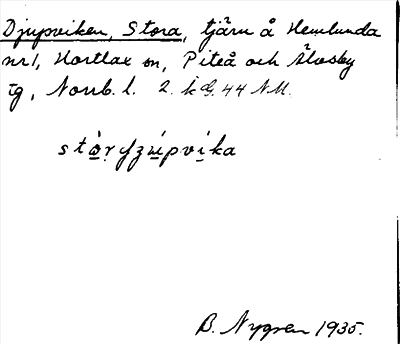 Djupviken, Stora, tjärn å Hemlunda
nr 1, Hortlax sn, Piteå och Älvsby
tg, Norrb. l. 2. k G. 44 N.M.
stòryzúpvika
B. Nygren 1935.